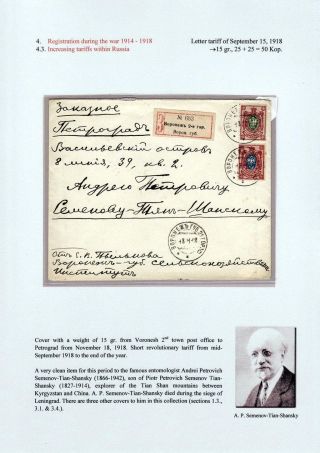 4. Registration during the war 1914 - 1918
Letter tariff of September 15, 1918
4.3. Increasing tariffs within Russia
→15 gr., 25 + 25 = 50 Kop.
Заказное
№ 653
Воронежъ 2-я гор.
Ворон. губ.
Петроградъ
Васильевскій островъ
8 линія, 39, кв. 2.
Андрею Петровичу
Семенову-Тянъ-Шанскому
Отъ
Воронеж. губ. сельскохозяйств.
Институтъ
Cover with a weight of 15 gr. from Voronesh 2nd town post office to
Petrograd from November 18, 1918. Short revolutionary tariff from mid-
September 1918 to the end of the year.
A very clean item for this period to the famous entomologist Andrei Petrovich
Semenov-Tian-Shansky (1866-1942), son of Piotr Petrovich Semenov Tian-
Shansky (1827-1914), explorer of the Tian Shan mountains between
Kyrgyzstan and China. A. P. Semenov-Tian-Shansky died during the siege of
Leningrad. There are three other covers to him in this collection (sections 1.3.,
3.1. & 3.4.).
A. P. Semenov-Tian-Shansky